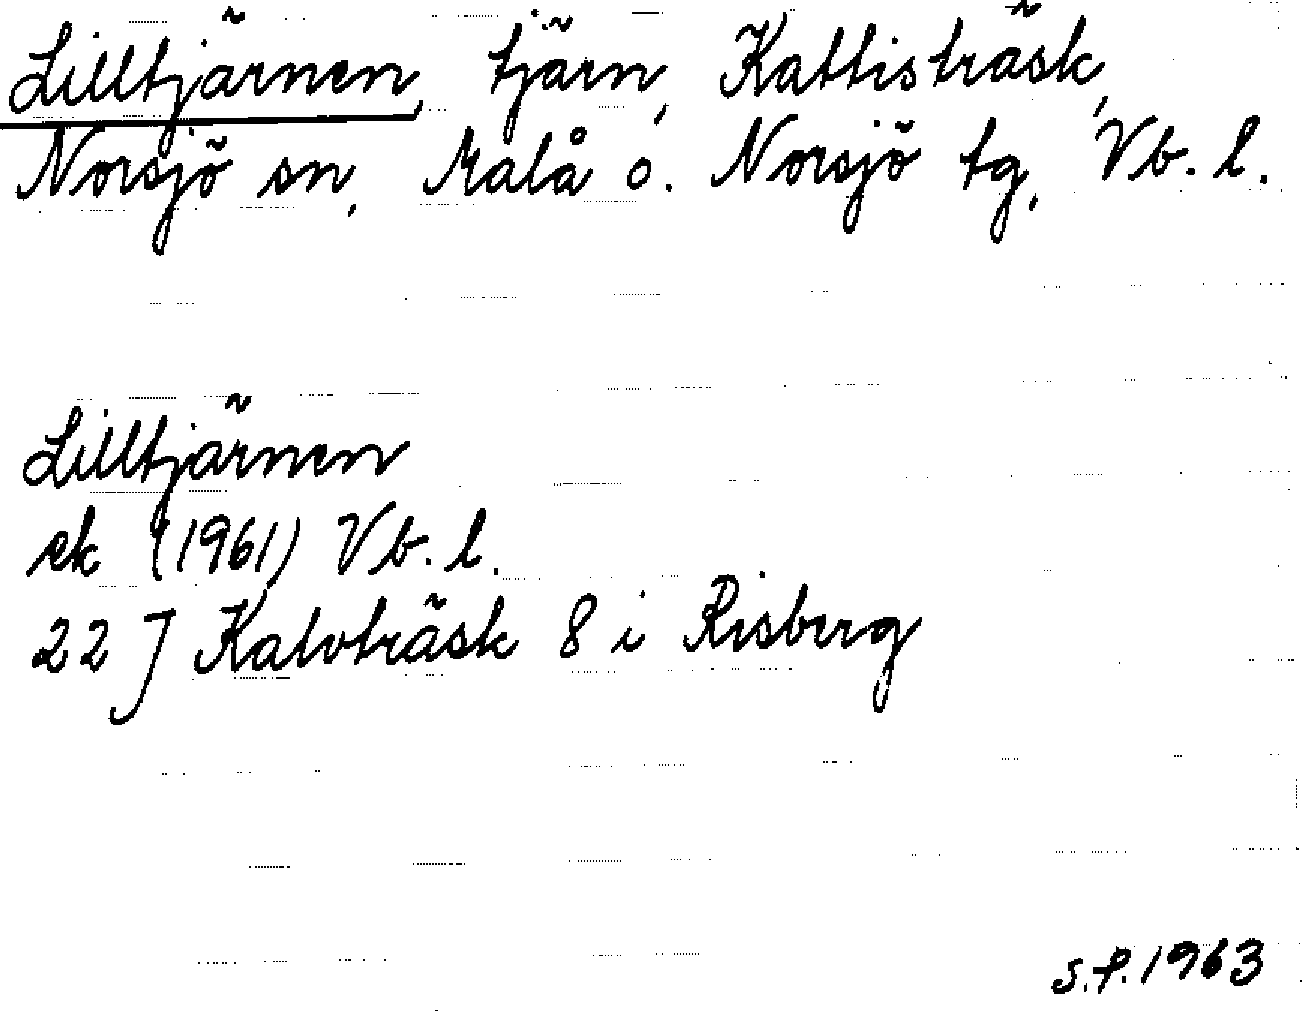 Lilltjärnen, tjärn, Kattisträsk,
Norsjö sn, Malå o. Norsjö tg, Vb. l.
Lilltjärnen
ek (1961) Vb. l.
22 J Kalvträsk 8 i Risberg
S.f. 1963